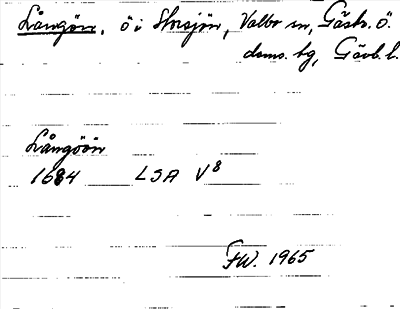 Långön, ö i Storsjön, Valbo sn, Gästr. ö.
doms. hg, Gävb. l.
Långöön
1684 LSA V8
FW. 1965